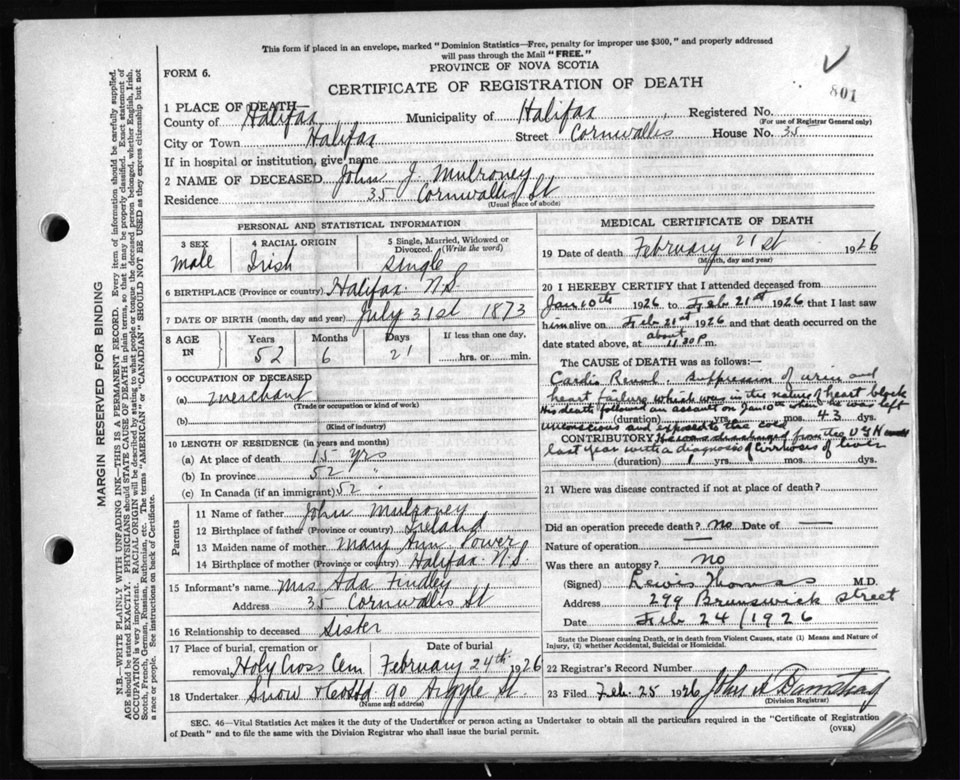 This form if placed in an envelope, marked "Dominion Statistics—Free, penalty for improper use $300," and properly addressed
will pass through the Mail "FREE."
PROVINCE OF NOVA SCOTIA
FORM 6.
CERTIFICATE OF REGISTRATION OF DEATH
801
1 PLACE OF DEATH—
County of Halifax Municipality of Halifax Registered No.
(For use of Registrar General only)
City or Town Halifax Street Cornwallis House No. 35
If in hospital or institution, give name
2 NAME OF DECEASED John J. Mulroney
Residence 35 Cornwallis St
(Usual place of abode)
PERSONAL AND STATISTICAL INFORMATION
3 SEX
male
4 RACIAL ORIGIN
Irish
5 Single, Married, Widowed or
Divorced. (Write the word)
Single
6 BIRTHPLACE (Province or country) Halifax N.S.
7 DATE OF BIRTH (month, day and year) July 31st 1873
8 AGE IN
Years Months Days If less than one day,
52 6 21 hrs. or min.
9 OCCUPATION OF DECEASED
(a) merchant
(Trade or occupation or kind of work)
(b)
(Kind of industry)
10 LENGTH OF RESIDENCE (in years and months)
(a) At place of death 15 yrs
(b) In province 52 "
(c) In Canada (if an immigrant) 52 "
Parents
11 Name of father John Mulroney
12 Birthplace of father (Province or country) Ireland
13 Maiden name of mother Mary Ann Power
14 Birthplace of mother (Province or country) Halifax N.S
15 Informant's name Mrs Ada Findley
Address 35 Cornwallis St
16 Relationship to deceased Sister
17 Place of burial, cremation or Date of burial
removal Holy Cross Cem February 24th 1926
18 Undertaker Snow & Co Ltd 90 Argyle St.
(Name and address)
MEDICAL CERTIFICATE OF DEATH
19 Date of death February 21st 1926
(Month, day and year)
20 I HEREBY CERTIFY that I attended deceased from
Jan 10th 1926 to Feb 21st 1926 that I last saw
him alive on Feb 21st 1926 and that death occurred on the
about
date stated above, at 11.30 P m.
The CAUSE of DEATH was as follows:
Cardio Renal. Suppression of urine and
heart failure which was in the nature of heart block
His death followed an assault on Jan 10th when he was left
(duration) yrs. mos. 43 dys.
unconscious and exposed to the cold
CONTRIBUTORY He was discharged from the V G H
last year with a diagnosis of cirrhosis of liver
(duration) 1 yrs. mos. dys.
21 Where was disease contracted if not at place of death?
Did an operation precede death? no Date of —
Nature of operation —
Was there an autopsy? no
(Signed) Lewis Thomas M.D.
Address 299 Brunswick Street
Date Feb 24/1926
State the Disease causing Death, or in death from Violent Causes, state (1) Means and Nature of
Injury, (2) whether Accidental, Suicidal or Homicidal.
22 Registrar's Record Number
23 Filed Feb. 25 1926 John A
(Division Registrar)
SEC. 46—Vital Statistics Act makes it the duty of the Undertaker or person acting as Undertaker to obtain all the particulars required in the "Certificate of Registration
of Death" and to file the same with the Division Registrar who shall issue the burial permit. (OVER)
MARGIN RESERVED FOR BINDING
N.B.—WRITE PLAINLY WITH UNFADING INK—THIS IS A PERMANENT RECORD. Every item of information should be carefully supplied.
AGE should be stated EXACTLY. PHYSICIANS should STATE CAUSE OF DEATH in plain terms, so that it may be properly classified. Exact statement of
OCCUPATION is very important. RACIAL ORIGIN will be described by stating to what people or tongue the deceased person belonged, whether English, Irish,
Scotch, French, German, Russian, Ruthenian, etc. The terms "AMERICAN" or "CANADIAN" SHOULD NOT BE USED as they express citizenship but not
a race or people. See instructions on back of Certificate.